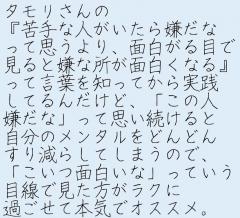 タモリさんの
『苦手な人がいたら嫌だな
って思うより、面白がる目で
見ると嫌な所が面白くなる』
って言葉を知ってから実践
してるんだけど、「この人
嫌だな」って思い続けると
自分のメンタルをどんどん
すり減らしてしまうので、
「こいつ面白いな」っていう
目線で見た方がラクに
過ごせて本気でオススメ。